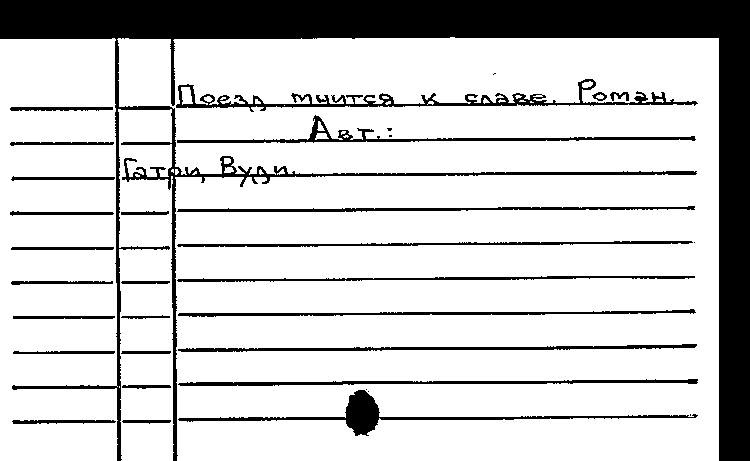 Поезд мчится к славе. Роман.
Авт.:
Гатри, Вуди.